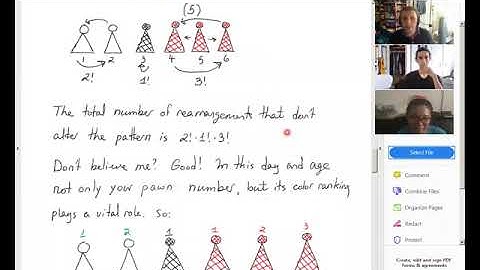 (5)
1 2 3 4 5 6
2! 1! 3!
The total number of rearrangements that don't
alter the pattern is 2!·1!·3!
Don't believe me? Good! In this day and age
not only your pawn number, but its color ranking
plays a vital role. So:
1 2 1 1 2 3
Select File
Comment
Combine Files
Organize Pages
Redact
Protect
Create, edit and sign PDF
forms & agreements